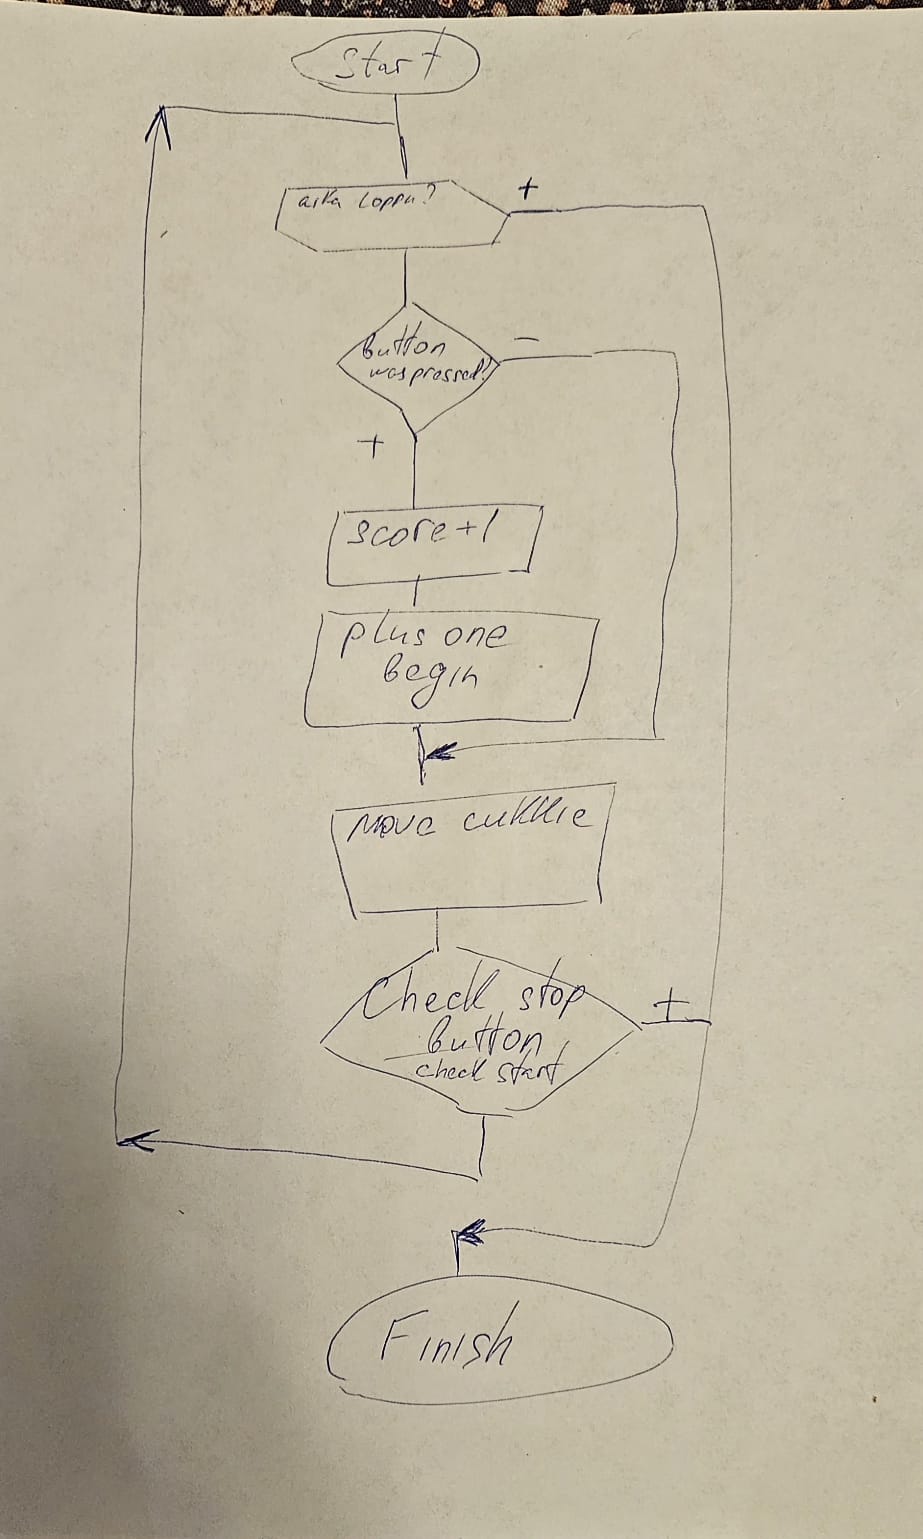 Start
aika loppu?
+
Button
was pressed?
-
+
score+1
plus one
begin
Move cukkie
Check stop
+
button
check start
Finish